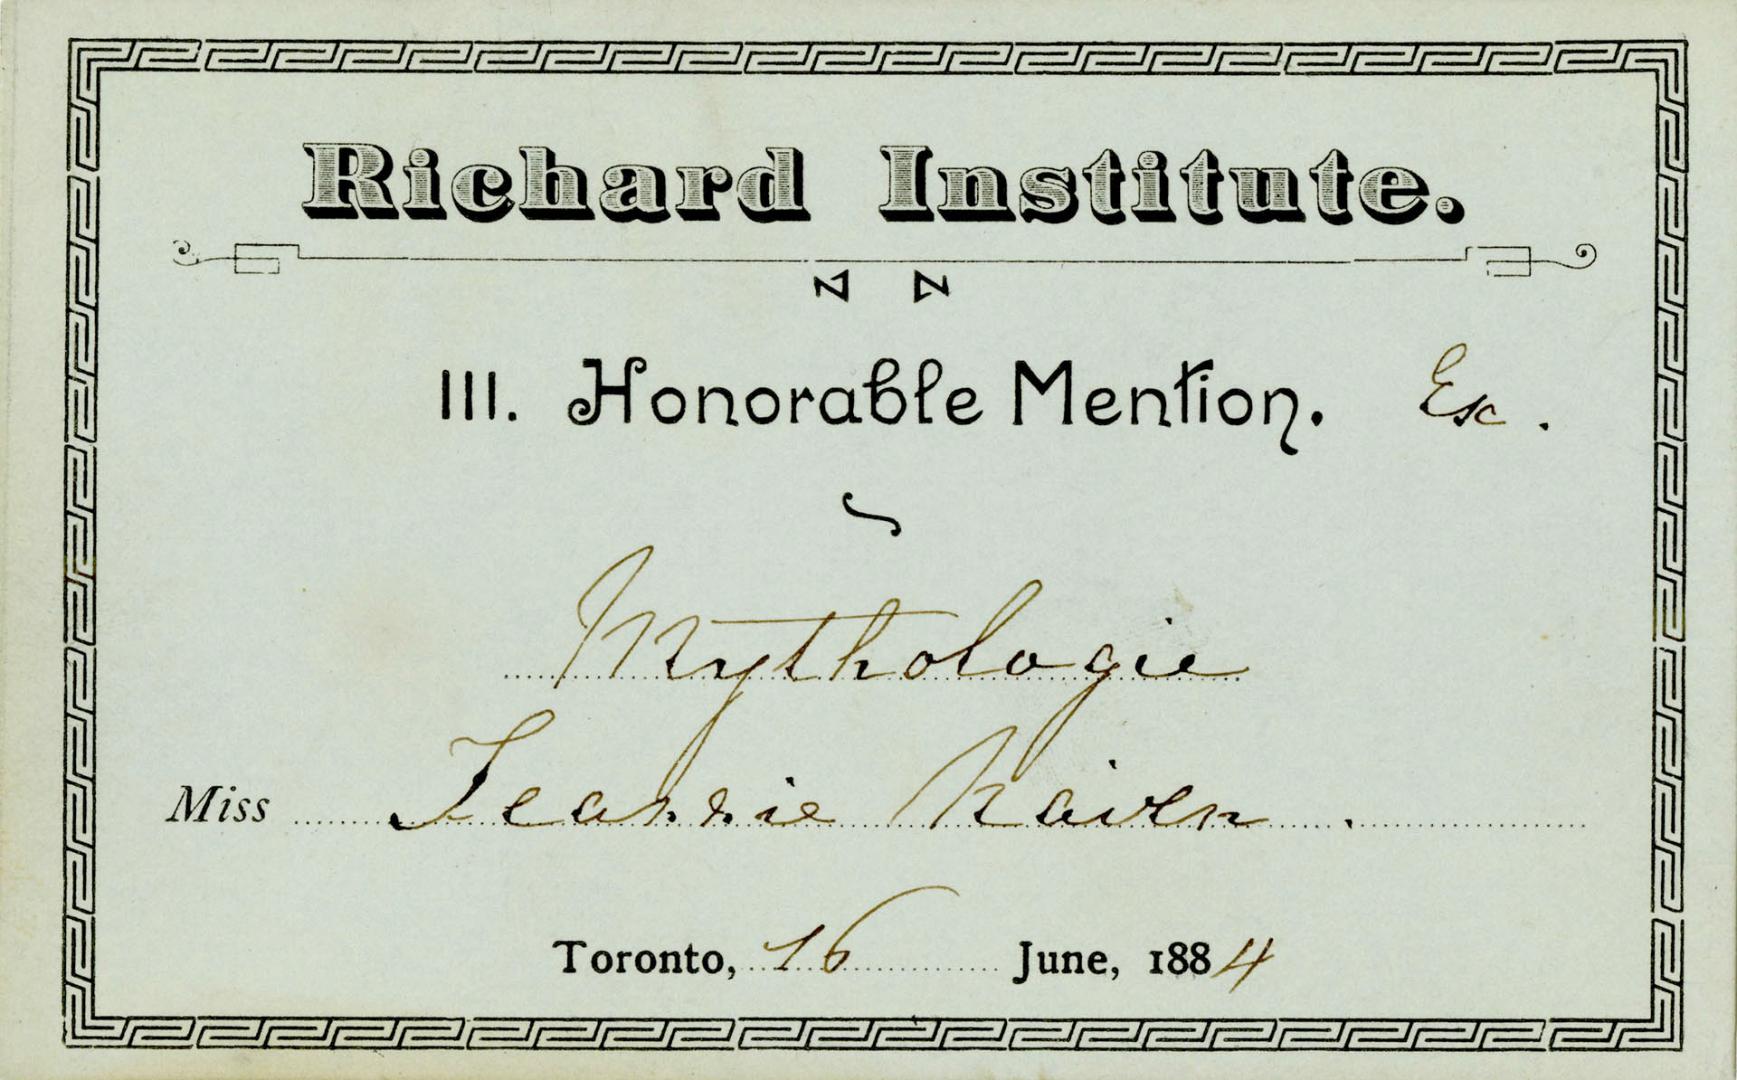 Richard Institute.
III. Honorable Mention. Esc.
Mythologie
Miss Jeannie Naiven.
Toronto, 16 June, 1884